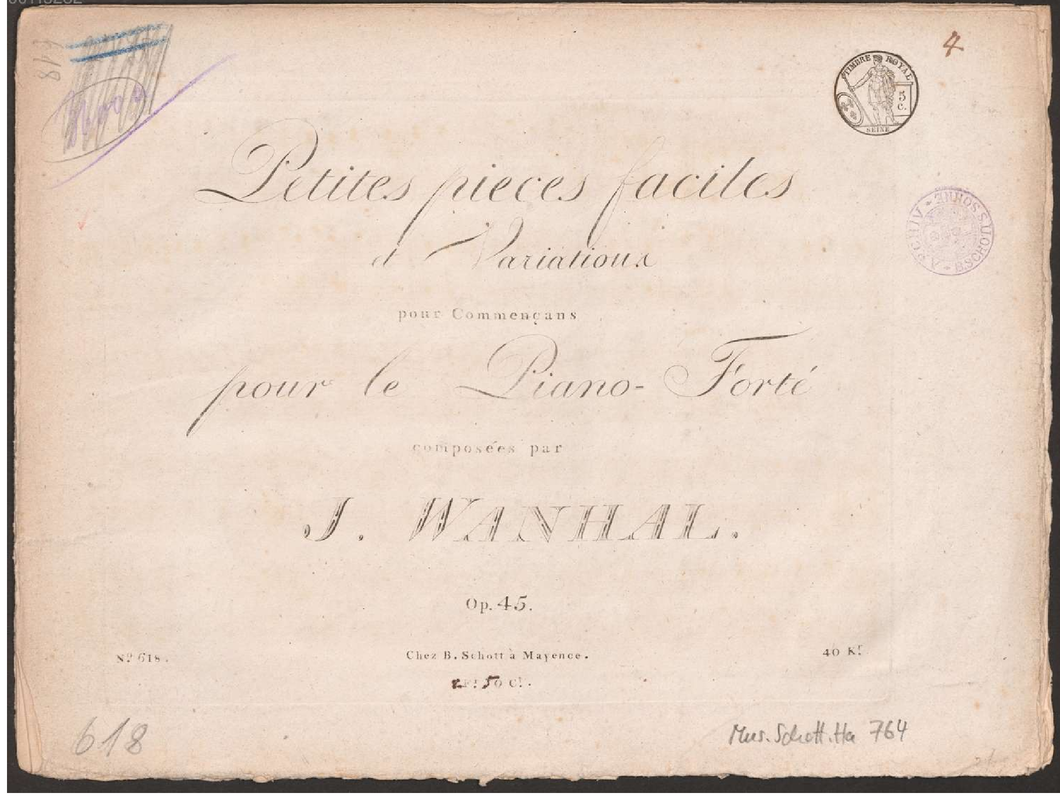 618
4
TIMBRE ROYAL
5
c.
SEINE
ARCHIV
B. SCHOTT'S SÖHNE
Petites pieces faciles
et Variationx
pour Commençans
pour le Piano-Forté
composées par
J. WANHAL.
Op. 45.
Nº 618.
Chez B. Schott à Mayence.
40 Kr
50 Ct.
618
Mus. Schott. Ha 764